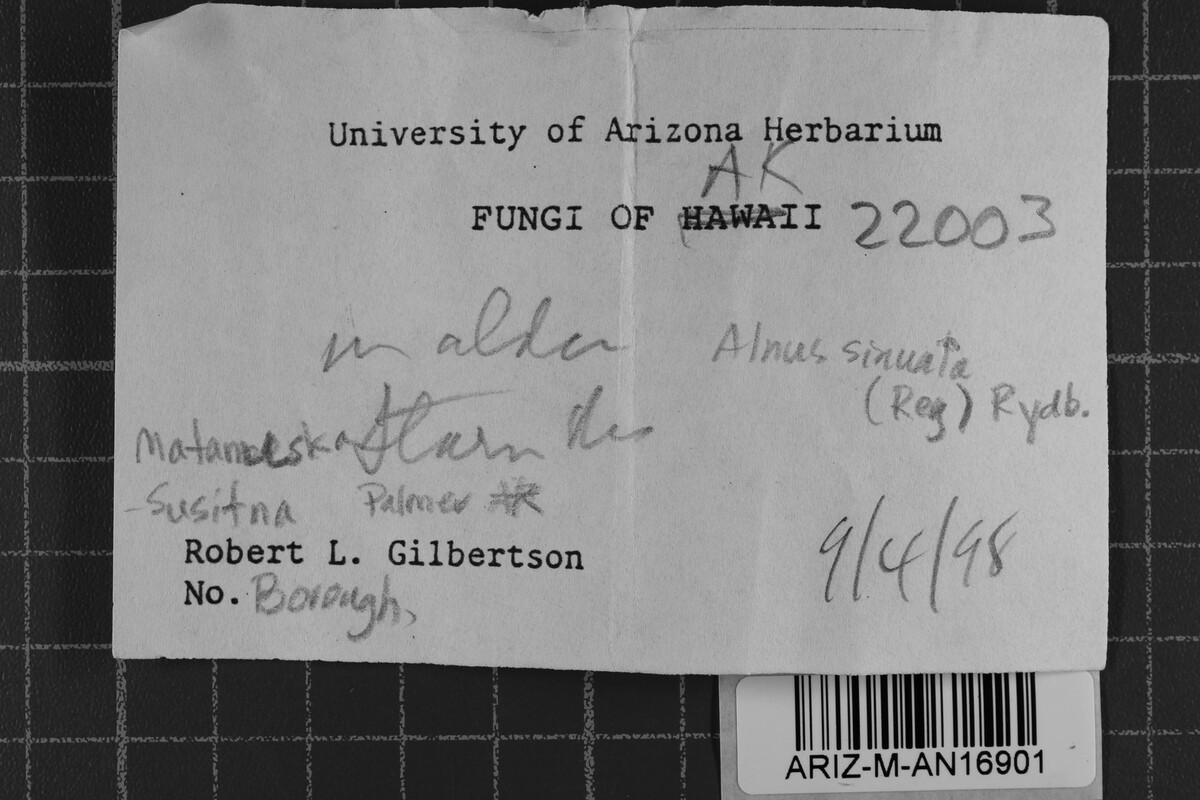 University of Arizona Herbarium
AK
FUNGI OF HAWAII 22003
on alder Alnus sinuata
(Reg) Rydb.
Matanuska
-Susitna Palmer AK
9/4/98
Robert L. Gilbertson
No. Borough,
ARIZ-M-AN16901